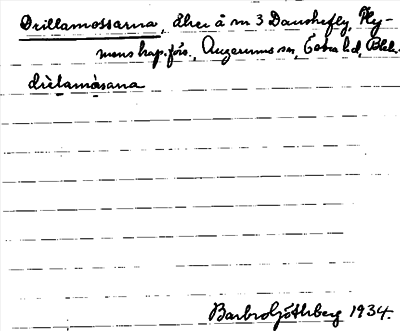 Drillamossarna, åker å m 3 Danskefly, Fly-
mens kap.förs., Augerums sn, Östra hd, Blek.
drìlamåsana
Barbro Göthberg 1934.